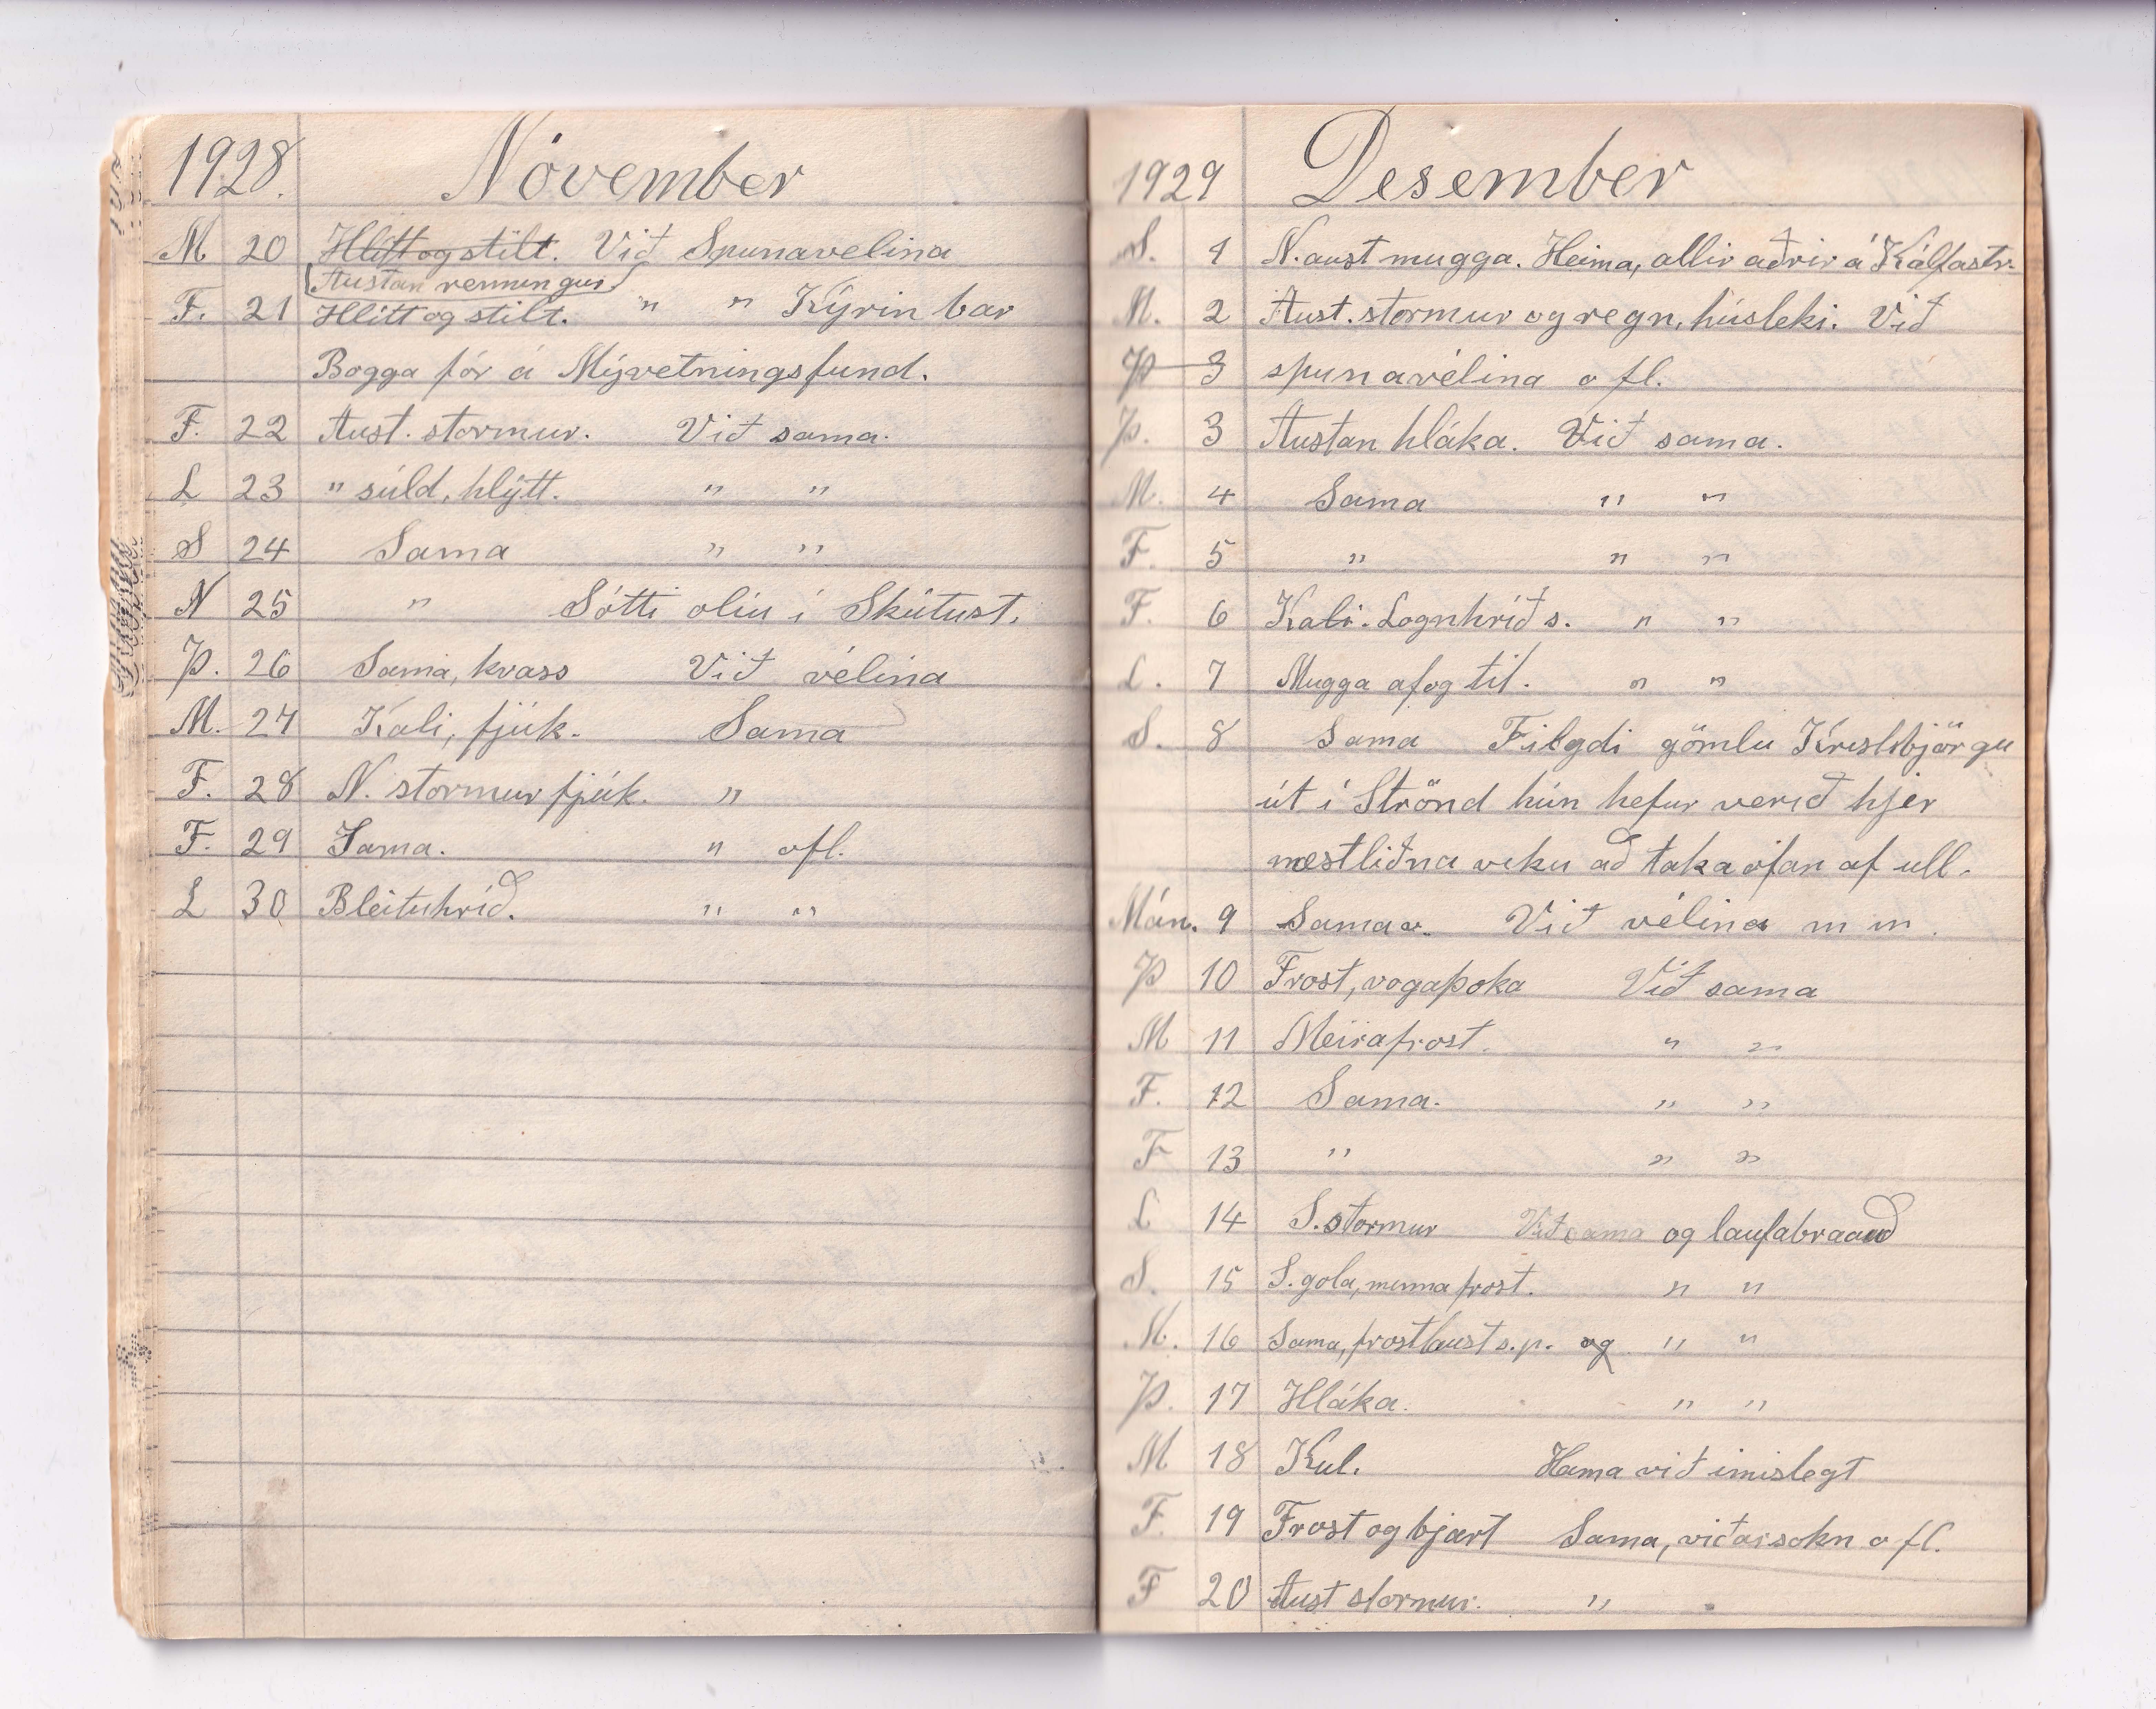 1928. Nóvember
M 20 Hlítt og stilt. Við Spunavelina
Austan renningur
F. 21 Hlítt og stilt. " " Kýrin bar
Bogga fór á Mývetningsfund.
F. 22 Aust. stormur. Við sama.
L 23 " súld, hlýtt. " "
S 24 Sama " "
N 25 " Sótti oliu i Skútust.
Þ. 26 Sama, kvass Við vélina
M. 27 Kali, fjúk. Sama
F. 28 N. stormur fjúk. "
F. 29 Sama. " ofl.
L 30 Bleituhríð. " "
1929 Desember
S. 1 N. aust mugga. Heima, allir aðrir á Kálfastr.
M. 2 Aust. stormur og regn, húsleki. Við
Þ 3 spunavélina o fl.
Þ. 3 Austan hláka. Við sama.
M. 4 Sama " "
F. 5 " " "
F. 6 Kali. Lognhríð s. " "
L. 7 Mugga af og til. " "
S. 8 Sama Filgdi gömlu Kristbjörgu
út í Strönd hún hefur verið hjer
næstliðna viku að taka ofan af ull.
Mán. 9 Sama v. Við vélina m m.
Þ 10 Frost, vogaþoka Við sama
M 11 Meirafrost. " "
F. 12 Sama. " "
F 13 " " "
L 14 S. stormur Við sama og laufabrauð
S. 15 S. gola, minna frost. " "
M. 16 Sama, frostlaust s.p. og " "
Þ. 17 Hláka. " "
M 18 Kul. Hama við imislegt
F. 19 Frost og bjart Sama, viðarsokn o fl.
F 20 Aust stormur. " "